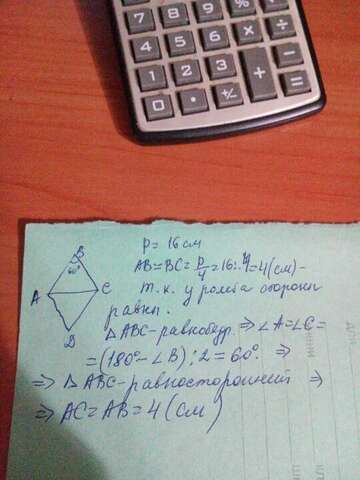 7 8 9 % ÷
4 5 6 × −
1 2 3 + =
0 · +/−
B
60°
A
C
D
P = 16 см
AB=BC= P/4 =16:4=4(см)-
т.к. у ромба стороны
равны.
△ABC-равнобедр. ⇒ ∠A=∠C=
=(180°-∠B):2=60°. ⇒
⇒ △ABC-равносторонний ⇒
⇒ AC=AB=4(см)